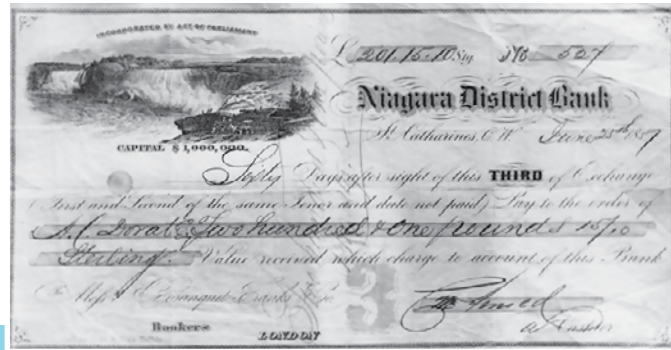 INCORPORATED BY ACT OF PARLIAMENT
£ 201.15.10 Stg. No 527
Niagara District Bank
St Catharines, C.W. June 25th 1857
CAPITAL $1,000,000.
Sixty Days after sight of this THIRD of Exchange
(First and Second of the same Tenor and date not paid) Pay to the order of
Two hundred & one pounds 15/10
Sterling. Value received which charge to account of this Bank
To Messrs Bosanquet Franks & Co
3
Bankers
LONDON
Cashier